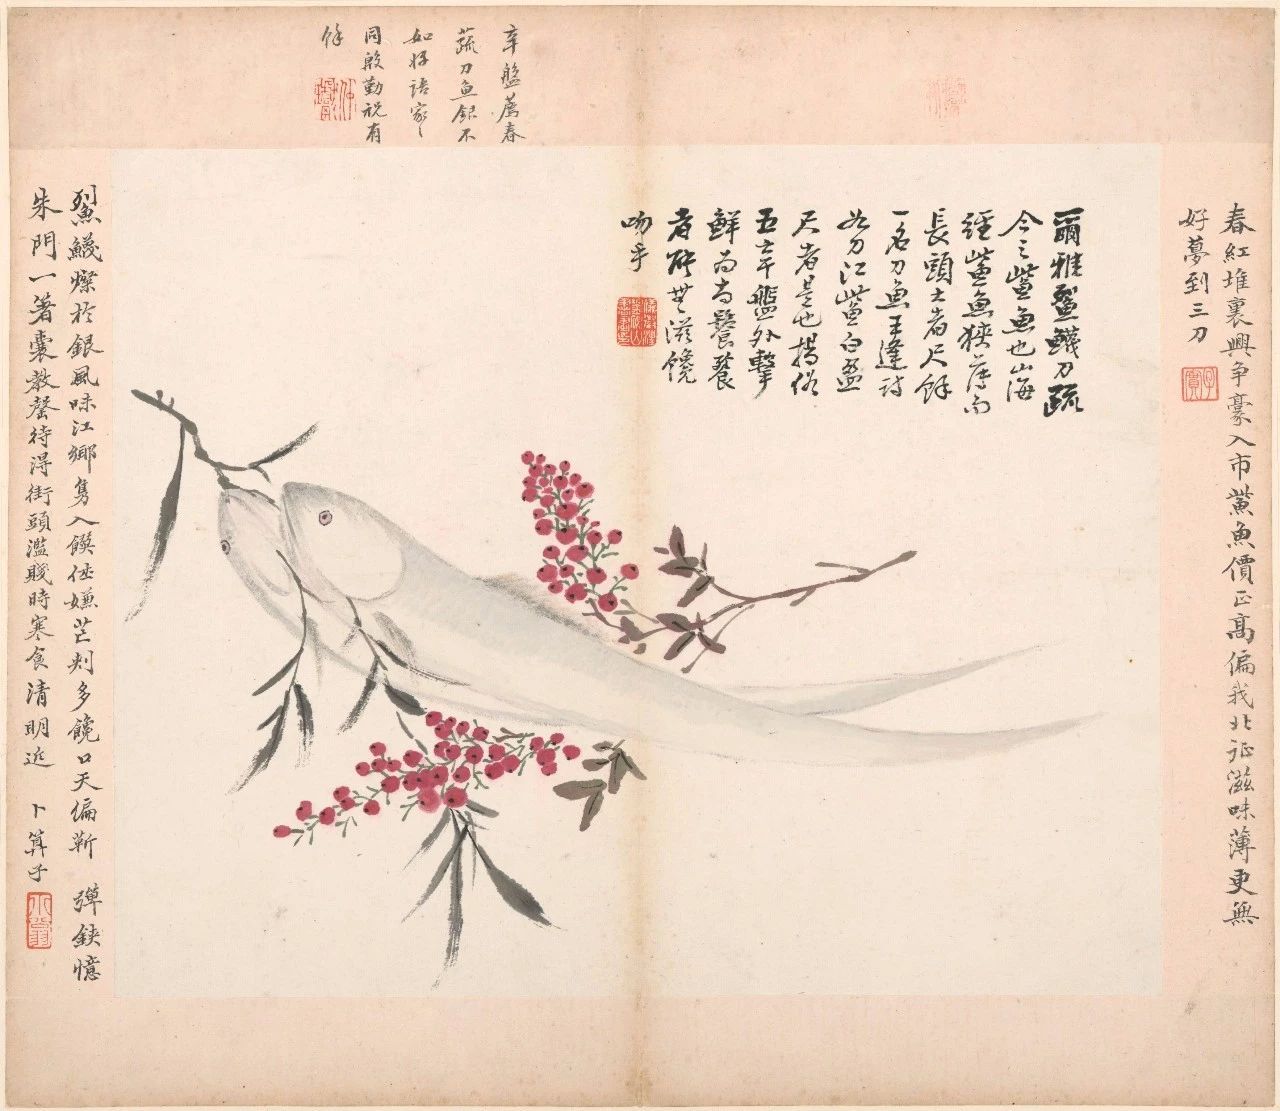 辛盤薦春
蔬刀魚銀不
如好語家〻
同殷勤祝有
餘
爾雅鮤鱴刀疏
今之鮆魚也山海
經鮆魚狹薄而
長頭大者尺餘
一名刀魚王逢詩
如刀江鮆白盈
尺者是也揚俗
五辛盤外擊
鮮為尚饕餮
者能無滋饞
吻乎
春紅堆裏興爭豪入市鮆魚價正高偏我北征滋味薄更無
好夢到三刀
鮤鱴燦於銀風味江鄉雋入饌

嫌芒刺多饞口天偏靳 彈鋏憶
朱門一箸囊教罄待得街頭濫賤時寒食清明近 卜算子